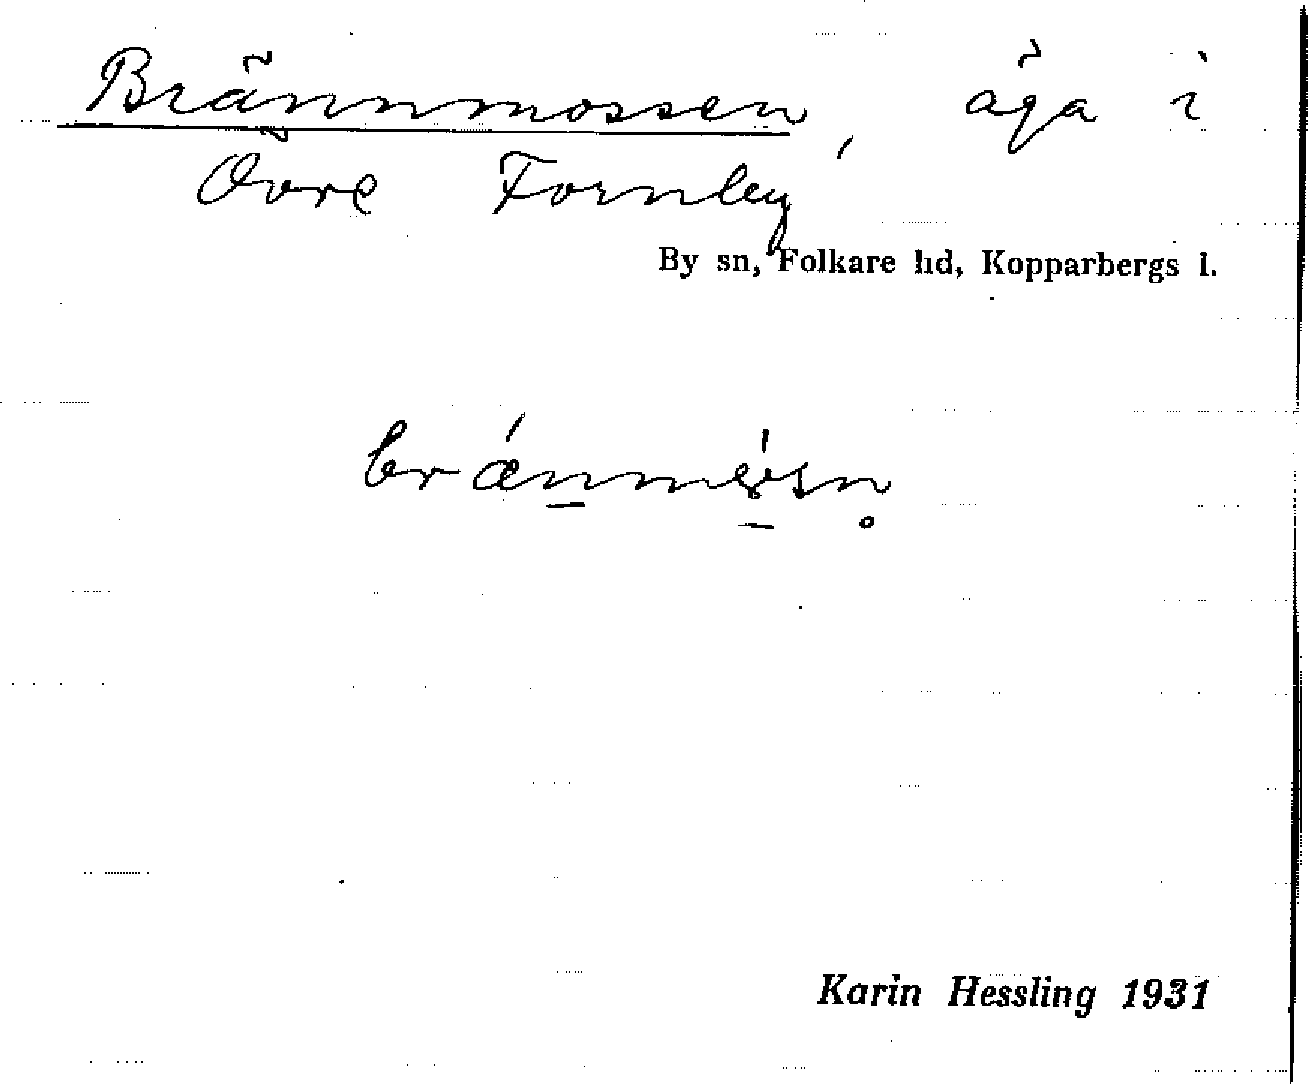 Brännmossen, äga i
Övre Fornby
By sn, Folkare hd, Kopparbergs l.
Karin Hessling 1931